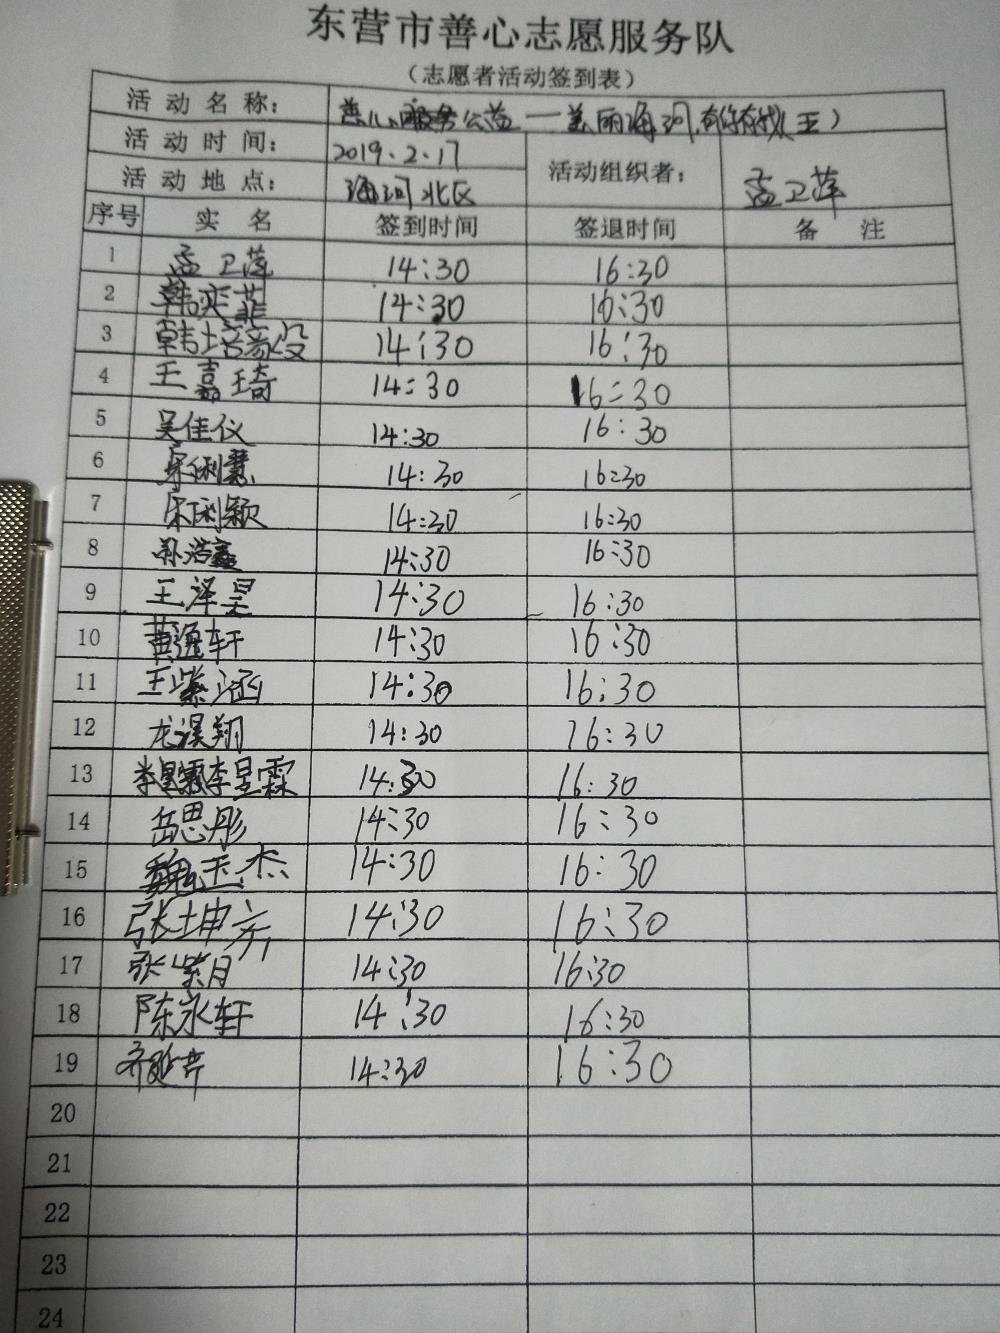 东营市善心志愿服务队
（志愿者活动签到表）
活动名称： 善心服务公益一美丽海河，有你有我（五）
活动时间： 2019.2.17 活动组织者： 孟卫萍
活动地点： 海河北区
序号 实名 签到时间 签退时间 备注
1 孟卫萍 14:30 16:30
2 韩奕菲 14:30 16:30
3 韩培毅 14:30 16:30
4 王嘉琦 14:30 16:30
5 吴佳仪 14:30 16:30
6 14:30 16:30
7 14:30 16:30
8 孙浩鑫 14:30 16:30
9 王泽昊 14:30 16:30
10 14:30 16:30
11 王紫涵 14:30 16:30
12 龙溪翔 14:30 16:30
13 李昱霖 14:30 16:30
14 岳思彤 14:30 16:30
15 魏玉杰 14:30 16:30
16 张坤 14:30 16:30
17 张紫月 14:30 16:30
18 陈永轩 14:30 16:30
19 14:30 16:30
20
21
22
23
24